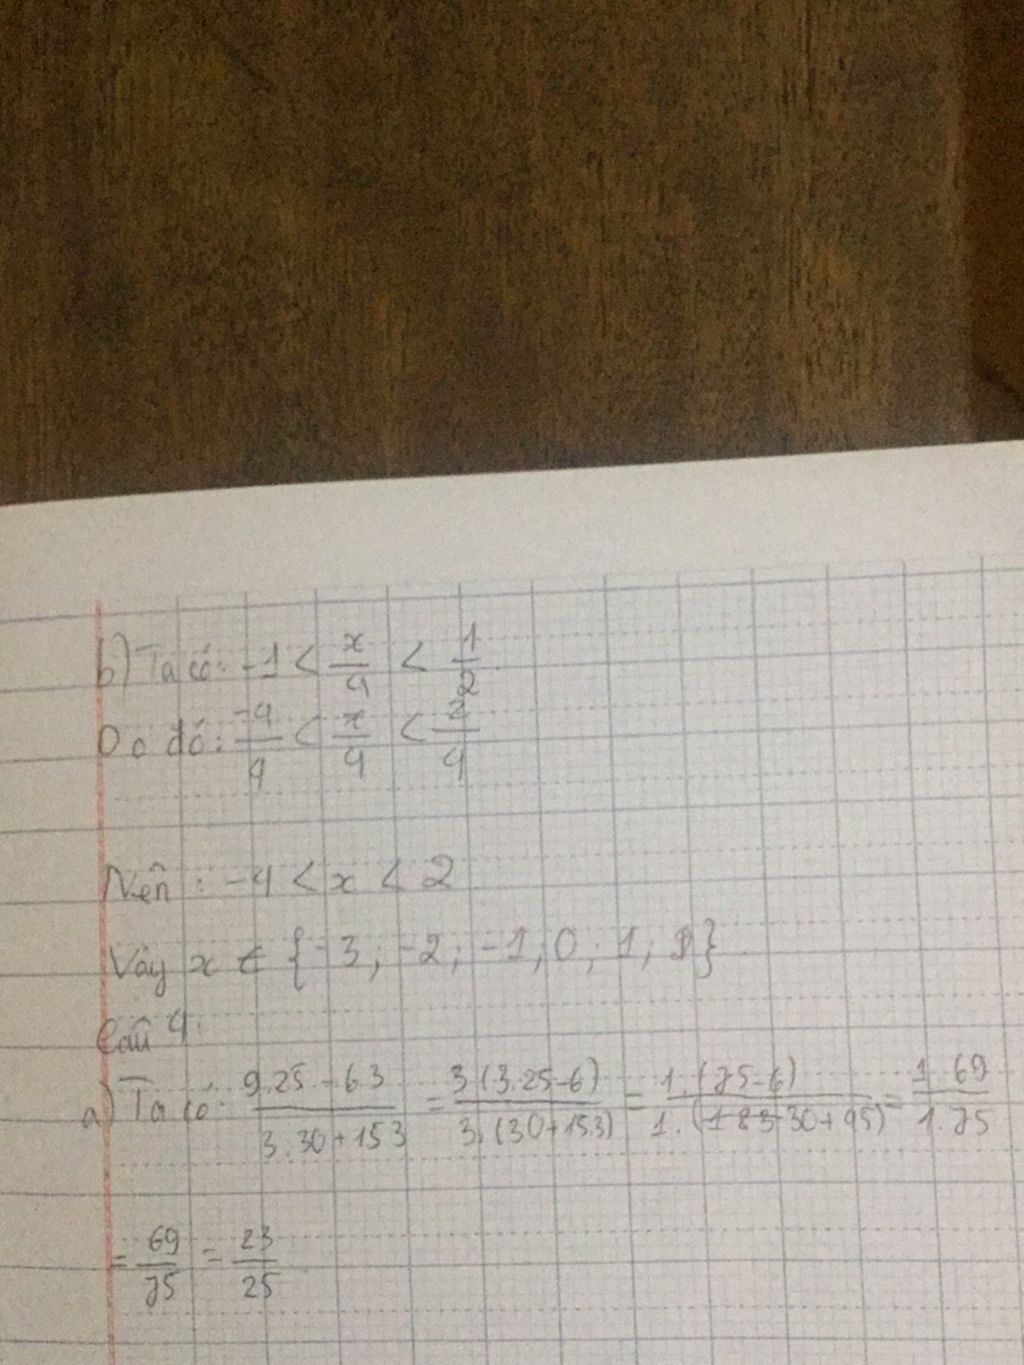 b) Ta có: -1 < x/4 < 1/2
Do đó: -4/4 < x/4 < 2/4
Nên: -4 < x < 2
Vậy x ∈ {-3; -2; -1; 0; 1; }
Câu 4:
a) Ta có: (9.25-63)/(3.30+153) = (3.(3.25-6))/(3.(30+15.3)) = (1.(75-6))/(1.( 30+45)) = (1.69)/(1.75)
= 69/75 = 23/25